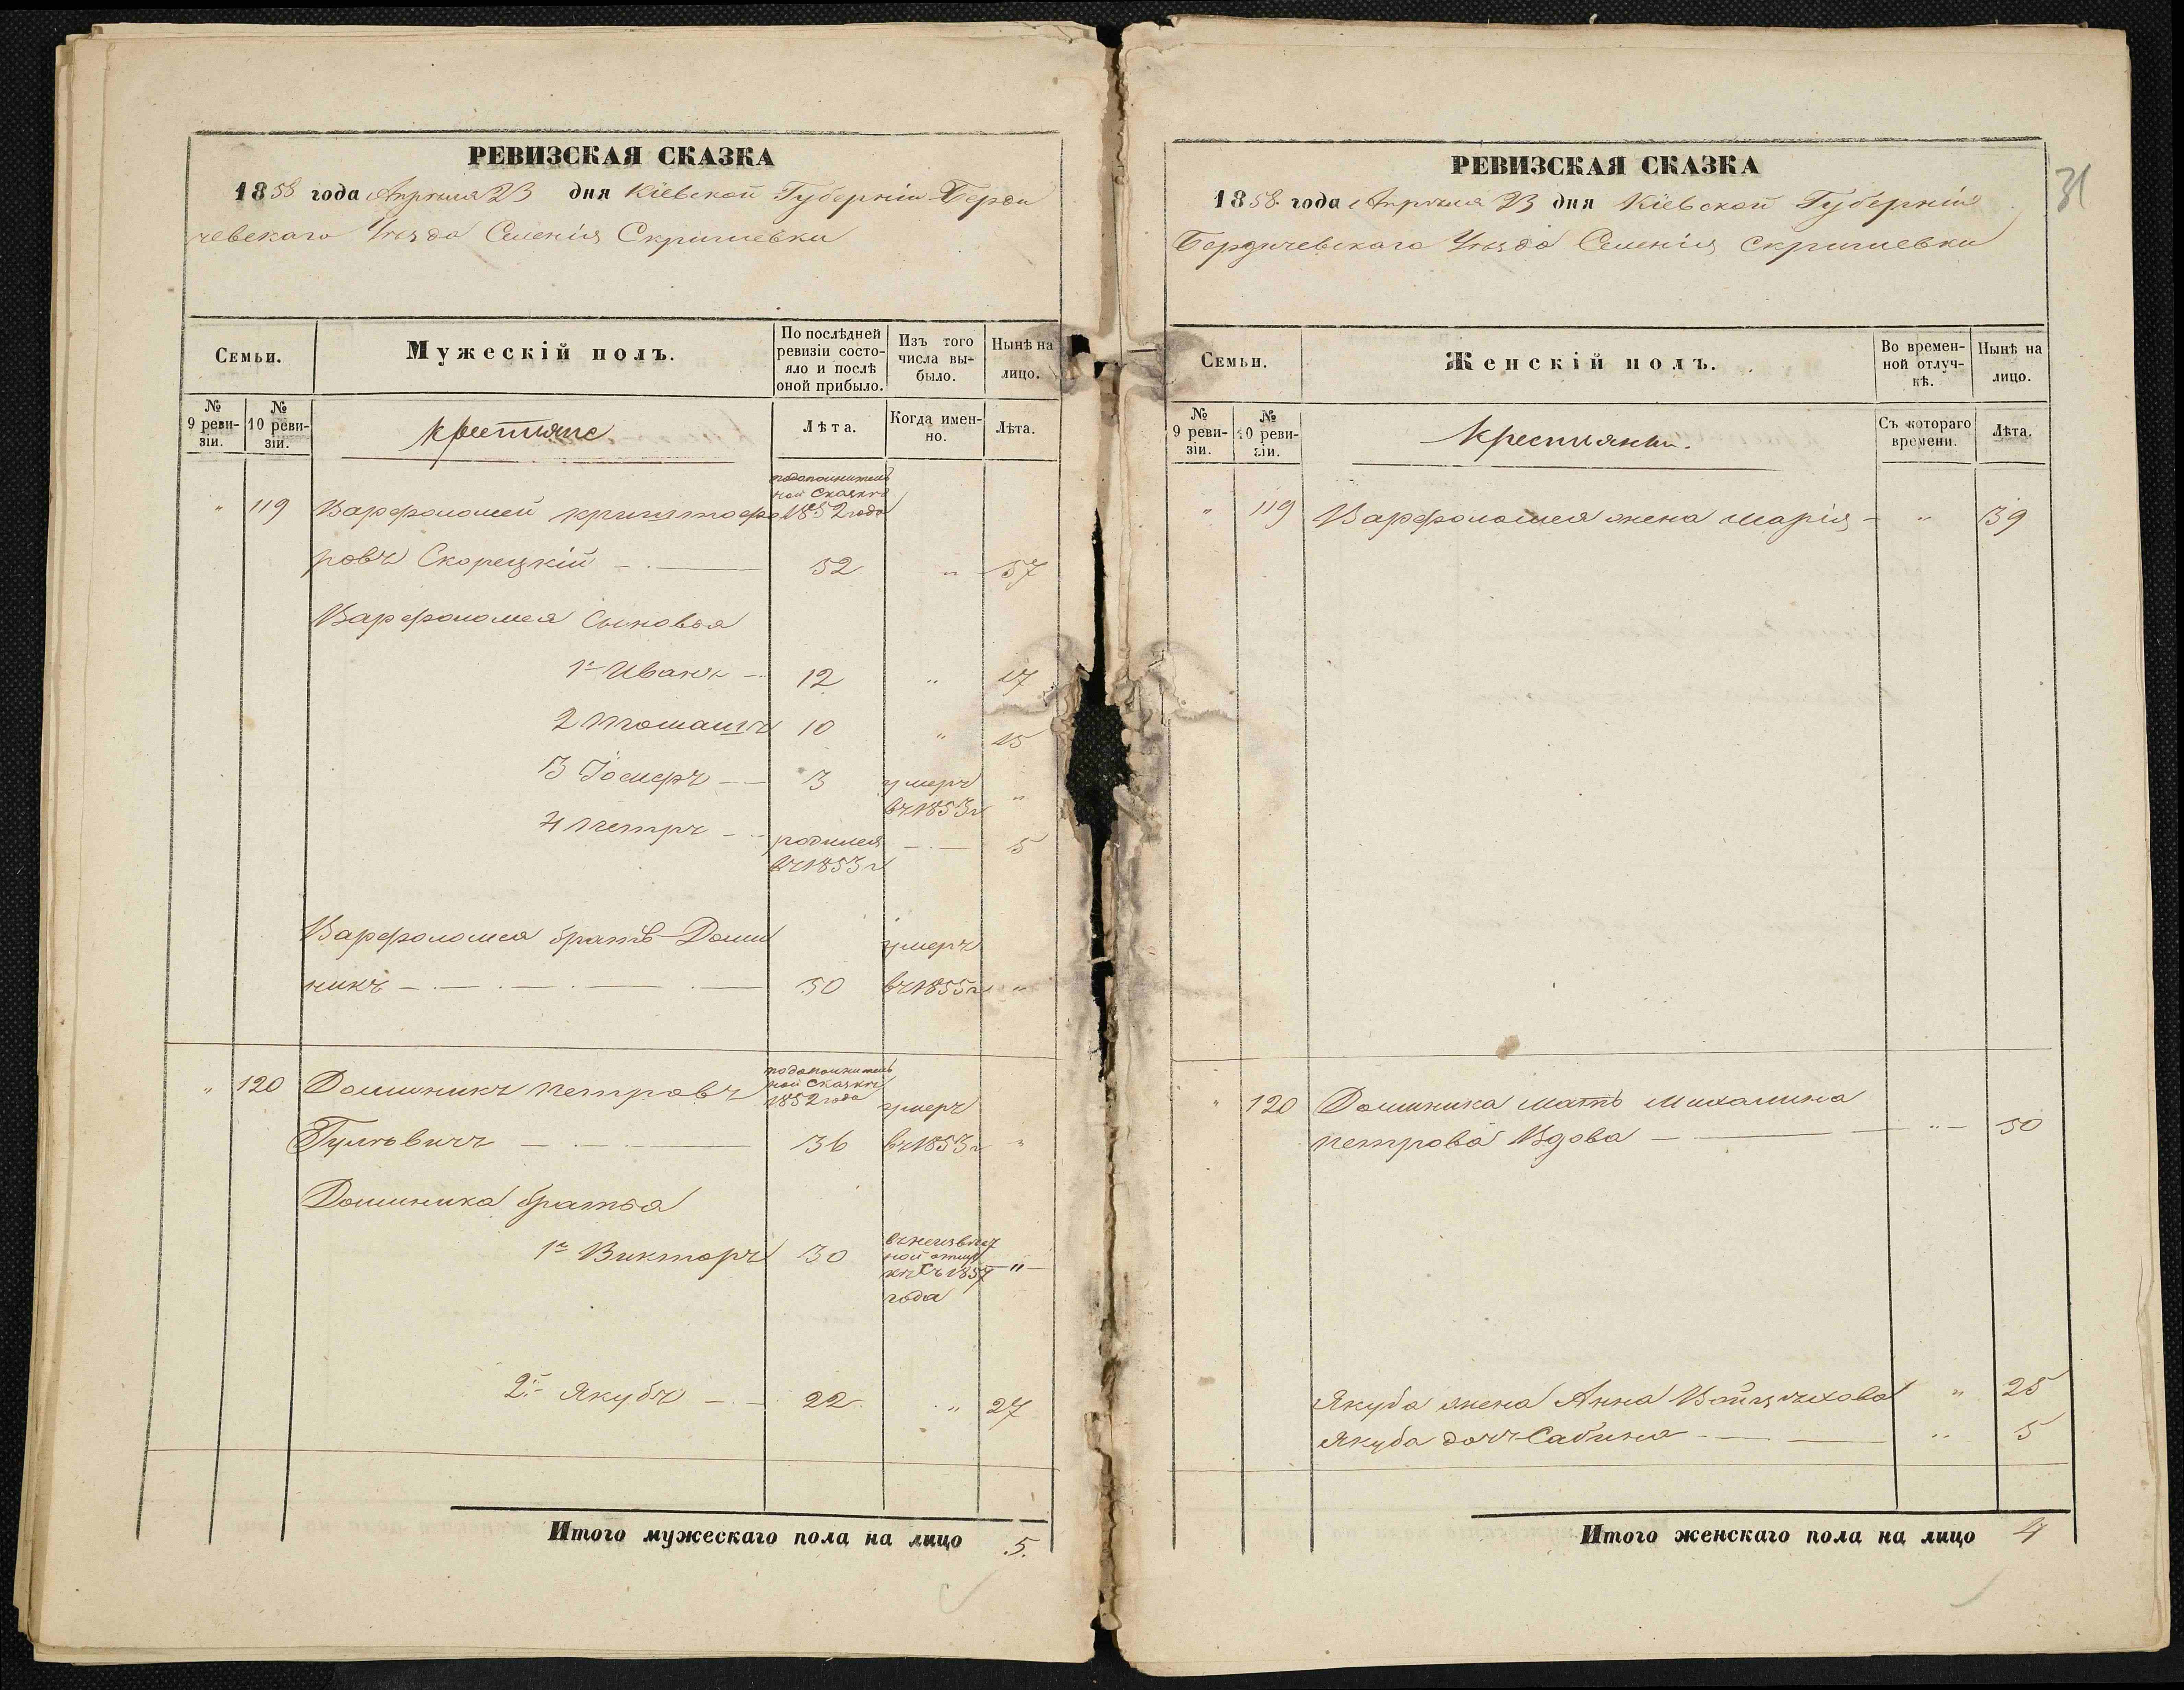 РЕВИЗСКАЯ СКАЗКА
1858 года Апрѣля 23 дня Кіевской Губерніи Берди
чевскаго Уѣзда Селенія Скригиевки
Семьи.
Мужескій полъ.
По послѣдней ревизіи состояло и послѣ оной прибыло.
Изъ того числа выбыло.
Нынѣ на лицо.
№ 9 ревизіи.
№ 10 ревизіи.
крестьяне
Лѣта.
Когда именно.
Лѣта.
подополнитель
ной Сказкѣ
„ 119 Варфоломей криштофо 1852 года
ровъ Скорецкій 52 „ 57
Варфоломея Сыновья
1й Иванъ 12 „ 17
2 Томашъ 10 „ 15
3 Іосифъ 3 умеръ
въ 1853г „
4 Петръ родился 5
въ 1853г
Варфоломея братъ Доми
умеръ
никъ 50 въ 1855г „
подополнитель
ной Сказкѣ
„ 120 Доминикъ Петровъ 1852 года
умеръ
Гулевичъ 36 въ 1853г „
Доминика братья
1й Викторъ 30 в неизвѣст
ной отлуч
кѣ съ 1857 „
года
2й Якубъ 22 „ 27
Итого мужескаго пола на лицо 5.
31
РЕВИЗСКАЯ СКАЗКА
1858 года Апрѣля 23 дня Кіевской Губерніи
Бердичевскаго Уѣзда Селенія Скригиевки
Семьи.
Женскій полъ.
Во временной отлучкѣ.
Нынѣ на лицо.
№ 9 ревизіи.
№ 10 ревизіи.
Крестьянки
Съ котораго времени.
Лѣта.
„ 119 Варфоломея жена Марія „ 39
„ 120 Доминика мать Михалина
Петрова Вдова „ 50
Якуба жена Анна Войцѣхова „ 25
Якуба дочь Сабина „ 5
Итого женскаго пола на лицо 4